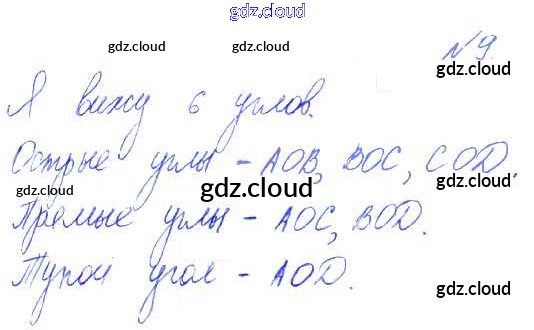 gdz.cloud
gdz.cloud
gdz.cloud
№9.
Я вижу 6 углов.
gdz.cloud
gdz.cloud
Острые углы - AOB, BOC, COD.
gdz.cloud
gdz.cloud
gdz.cloud
Прямые углы - AOC, BOD.
Тупой угол - AOD.
gdz.cloud
gdz.cloud